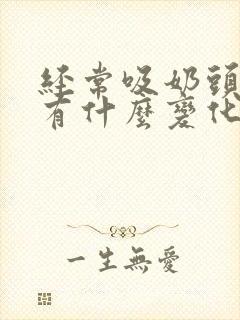 經常吸奶頭
有什麼變化
一生無愛